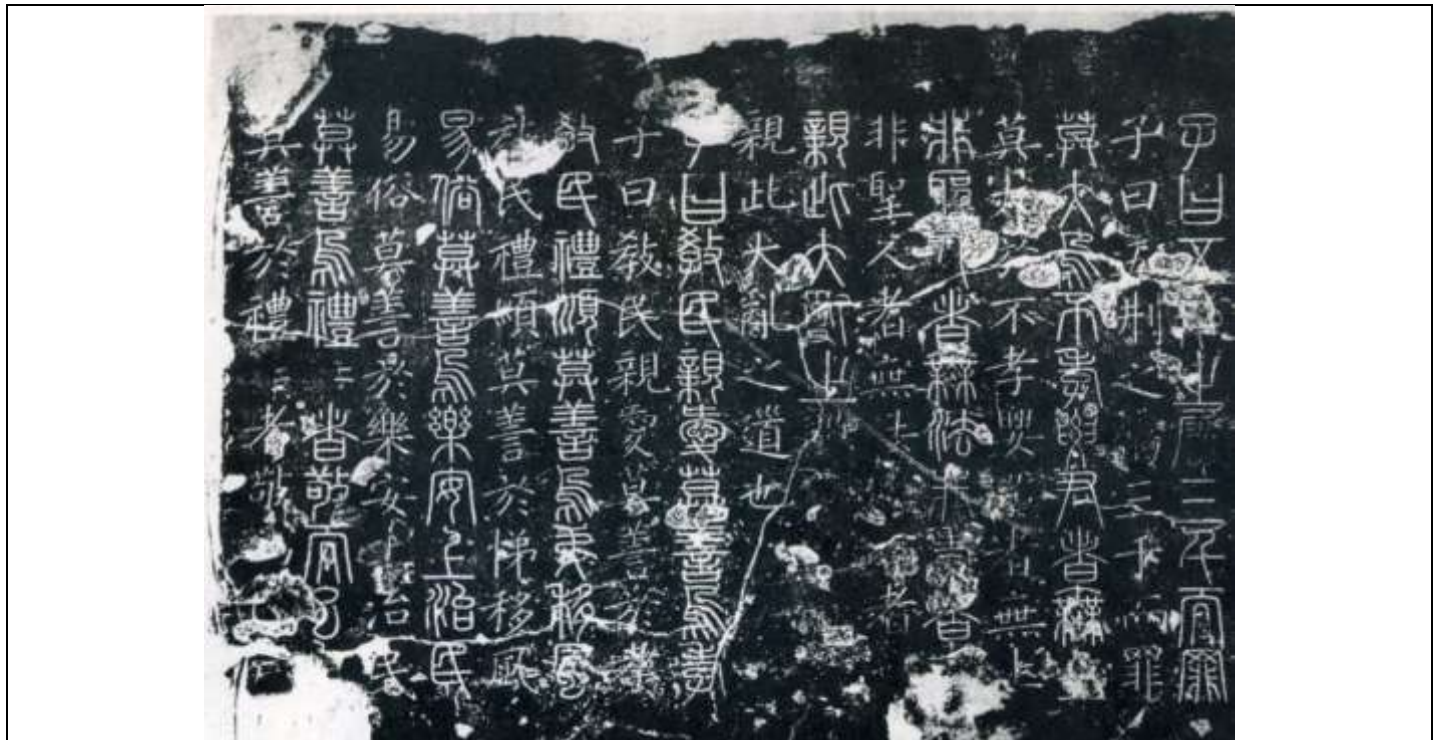 子曰五之屬三千而罪
子曰刑之三千而罪
莫大於不孝要君者無上
莫大不孝要君者無上
非聖人者無法非孝者
非聖人者無法孝者
親此大亂之
親此大亂之道也
子曰敎民親愛莫善於孝
子曰敎民親愛莫善於孝
敎民禮順莫善於弟移風
民禮順莫善於悌移風
易俗莫善於樂安上治民
易俗莫善於樂安上治民
莫善於禮〻者敬而已
莫善於禮〻者敬